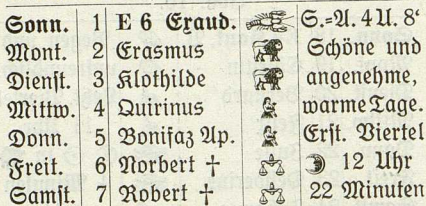 Sonn. 1 E 6 Exaud. S.=A. 4 U. 8‘
Mont. 2 Erasmus Schöne und
Dienst. 3 Klothilde angenehme,
Mittw. 4 Quirinus warme Tage.
Donn. 5 Bonifaz Ap. Erst. Viertel
Freit. 6 Norbert † 12 Uhr
Samst. 7 Robert † 22 Minuten